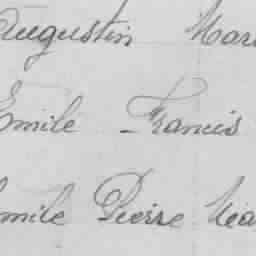 Augustin Mar
Emile Francis
Emile Pierre Ma